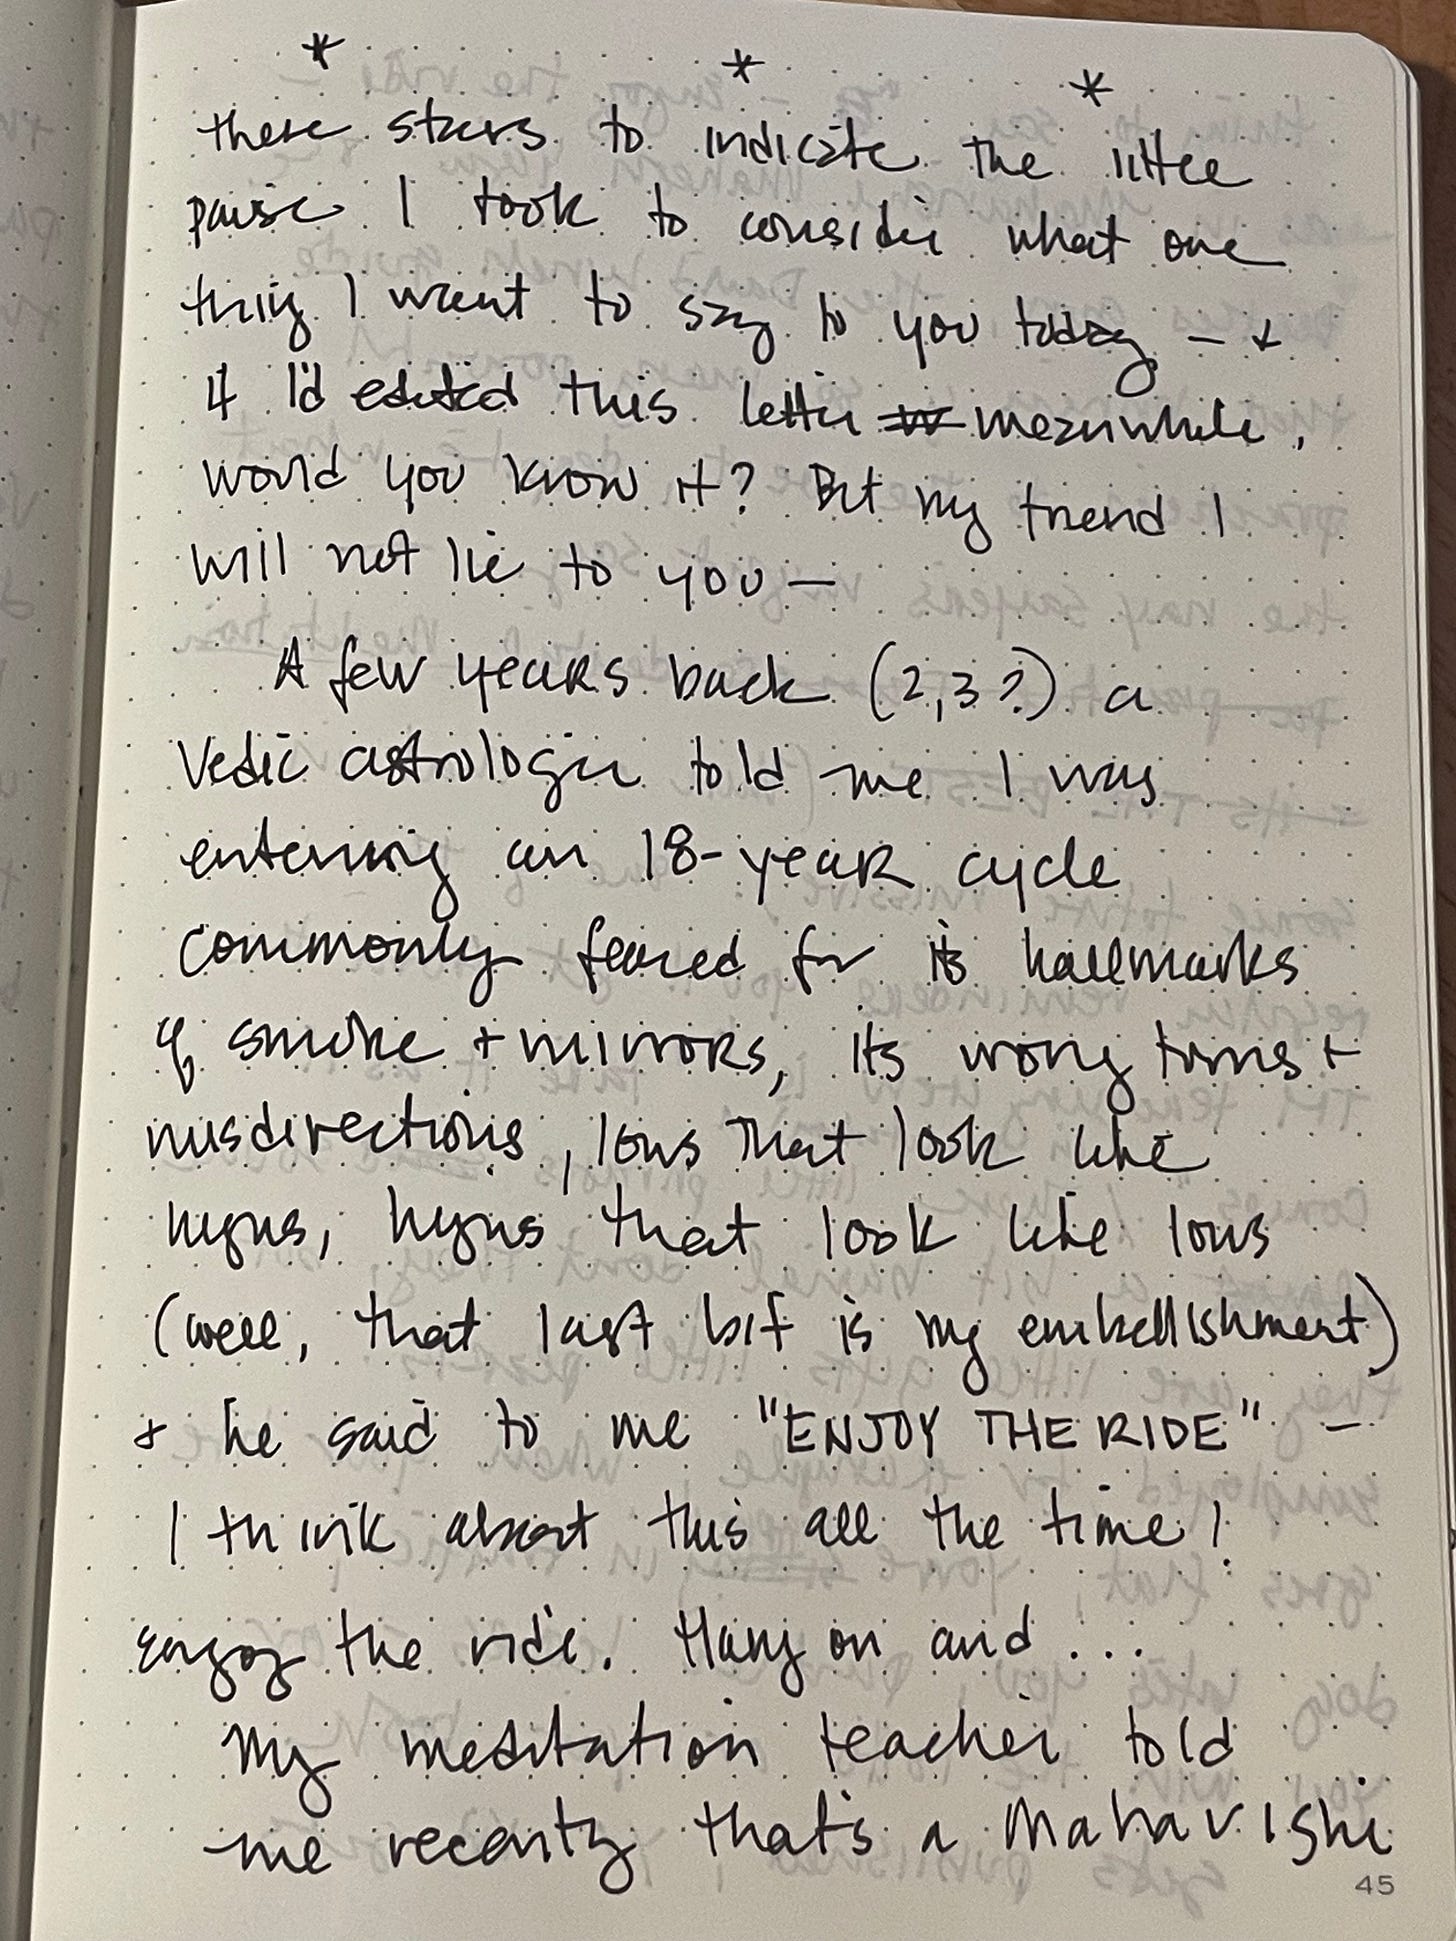 * * *
these stars to indicate the little
pause I took to consider what one
thing I want to say to you today — +
if I'd edited this letter meanwhile,
would you know it? But my friend I
will not lie to you —
A few years back (2,3?) a
Vedic astrologer told me I was
entering an 18-year cycle
commonly feared for its hallmarks
of smoke + mirrors, its wrong turns +
misdirections, lows that look like
highs, highs that look like lows
(well, that last bit is my embellishment)
+ he said to me "ENJOY THE RIDE" —
I think about this all the time!
enjoy the ride. Hang on and...
My meditation teacher told
me recently that's a Maharishi
45